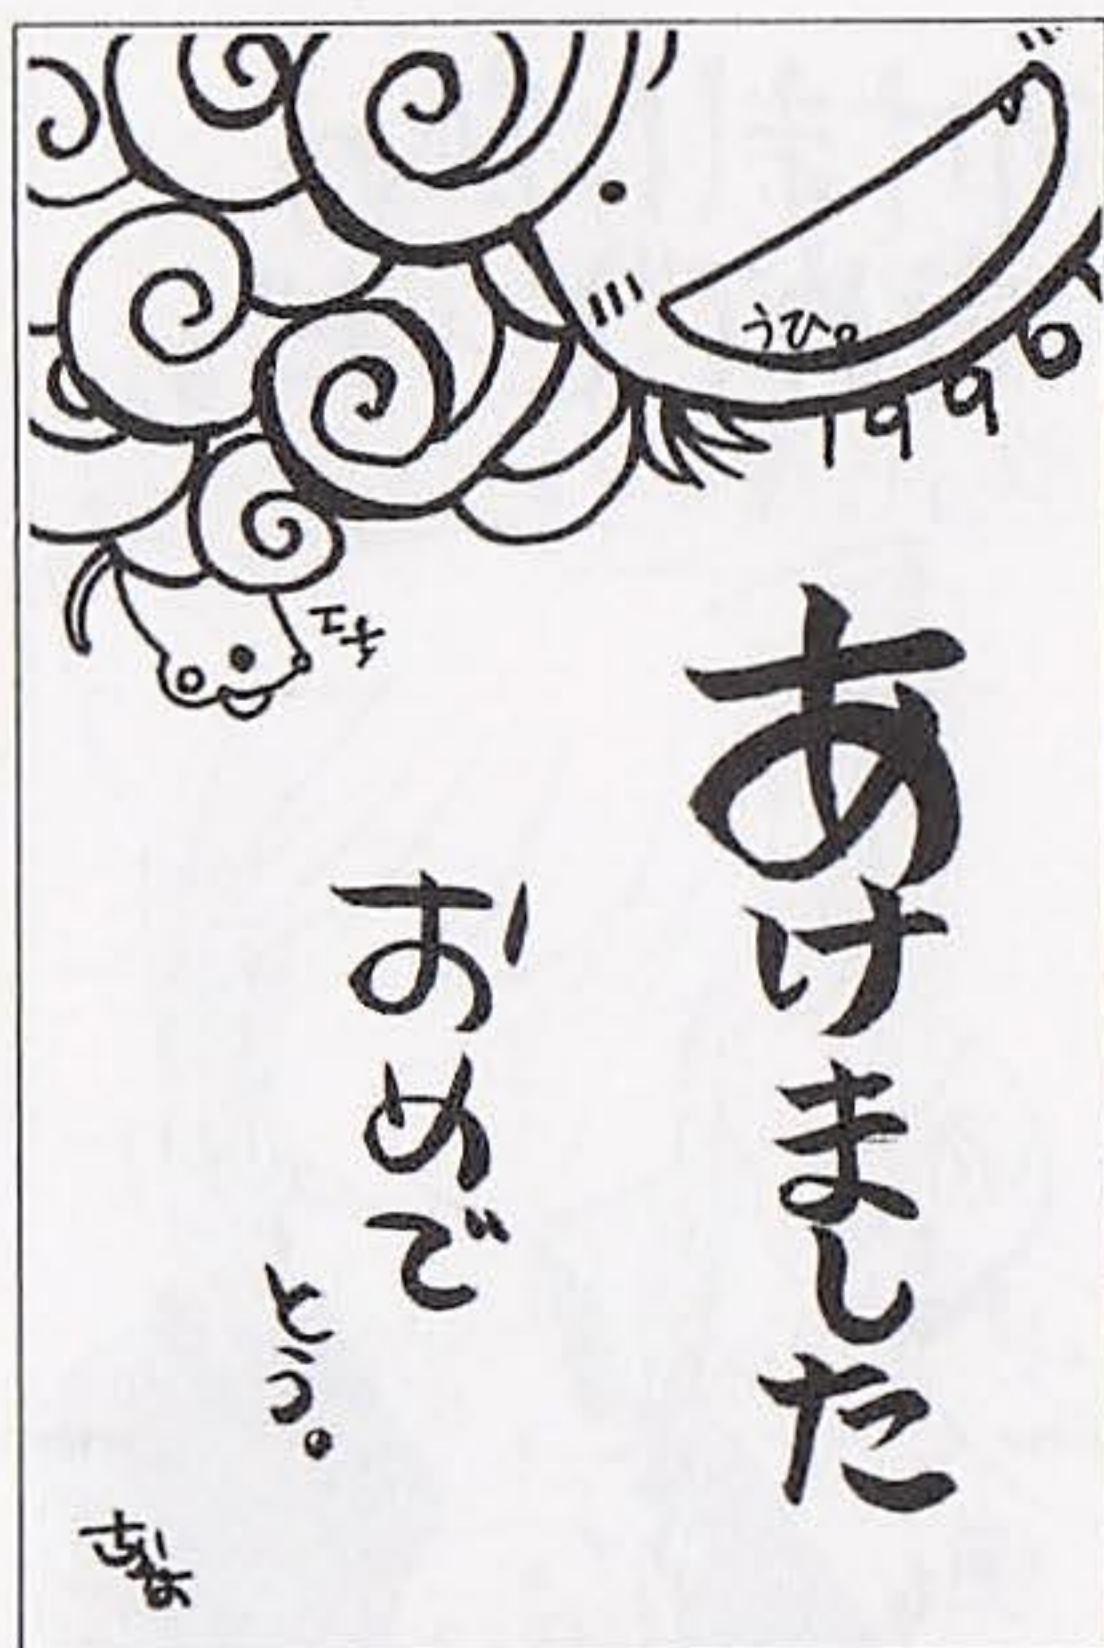 うひ。
1996
エヘ
あけました
おめで
とう。